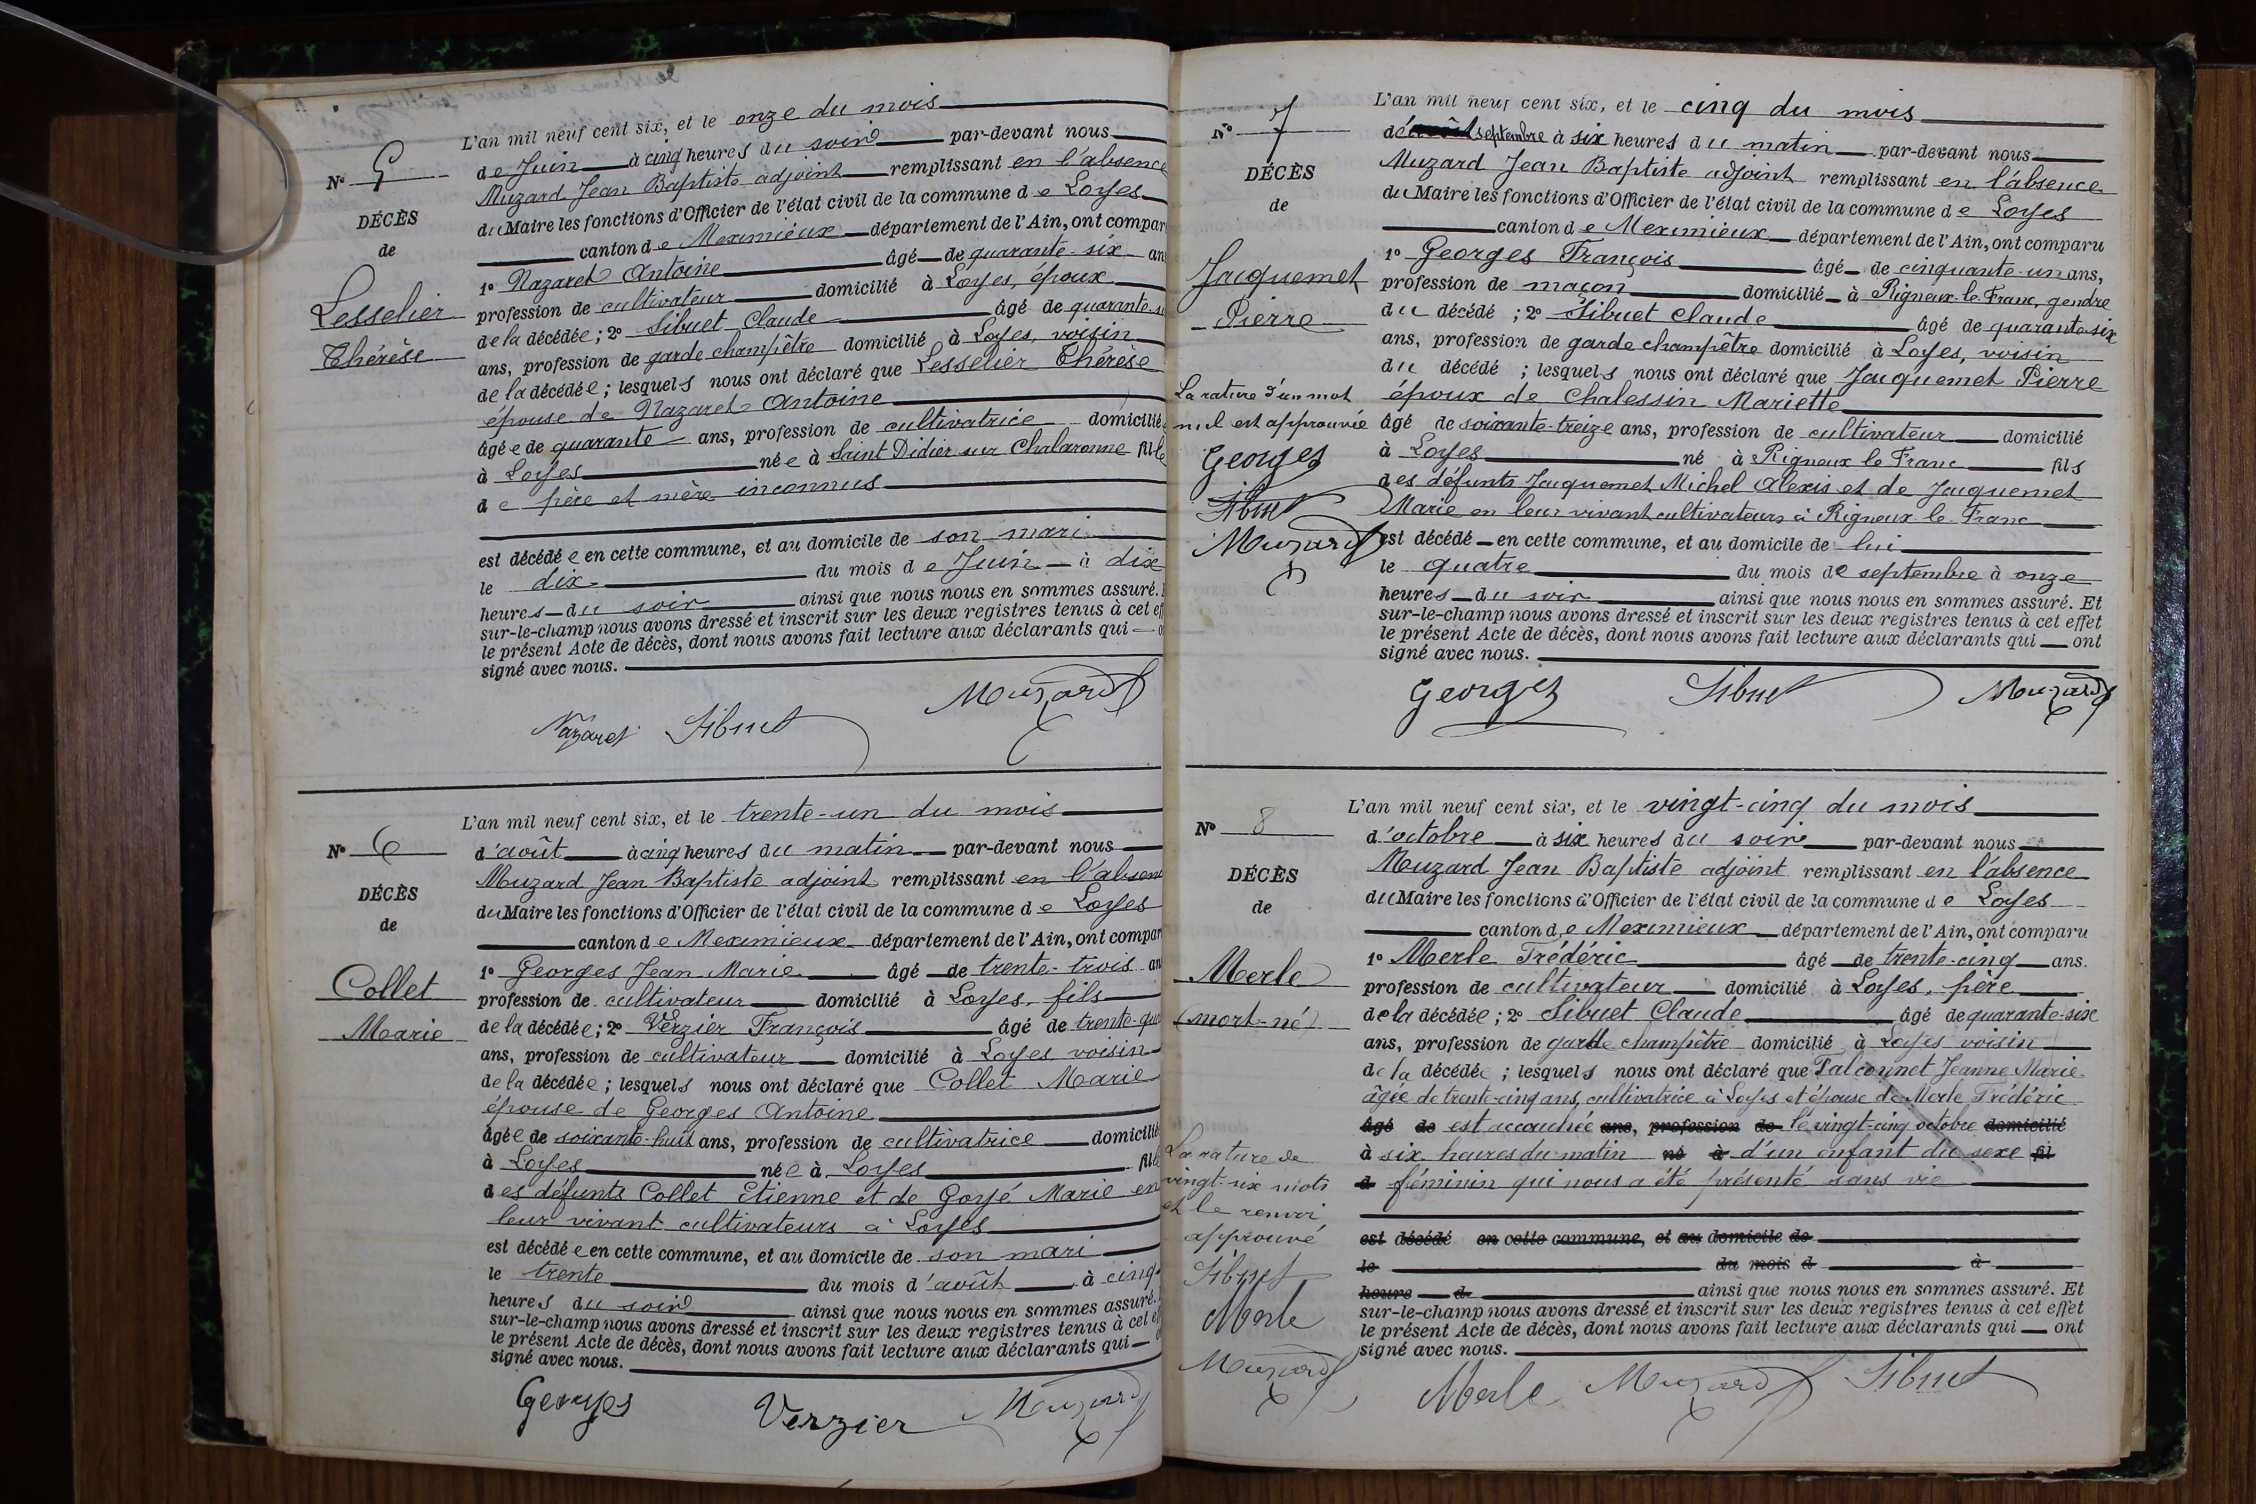 L'an mil neuf cent six, et le onze du mois
Nº 5
de Juin à cinq heures du soir par-devant nous
Muzard Jean Baptiste adjoint remplissant en l'absence
DÉCÈS
du Maire les fonctions d'Officier de l'état civil de la commune de Loyes
de
canton de Meximieux département de l'Ain, ont compar
1º Nazaret Antoine âgé de quarante-six an
Lesselier
profession de cultivateur domicilié à Loyes, époux
de la décédée; 2º Sibuet Claude âgé de quarante-si
Thérèse
ans, profession de garde champêtre domicilié à Loyes, voisin
de la décédée; lesquels nous ont déclaré que Lesselier Thérèse
épouse de Nazaret Antoine
âgée de quarante ans, profession de cultivatrice domicilié
à Loyes née à Saint Didier sur Chalaronne fille
de père et mère inconnus
est décédée en cette commune, et au domicile de son mari
le dix du mois de Juin à dix
heures du soir ainsi que nous nous en sommes assuré.
sur-le-champ nous avons dressé et inscrit sur les deux registres tenus à cet eff
le présent Acte de décès, dont nous avons fait lecture aux déclarants qui
signé avec nous.
Nazaret Sibuet Muzard
L'an mil neuf cent six, et le trente-un du mois
Nº 6
d'août à cinq heures du matin par-devant nous
Muzard Jean Baptiste adjoint remplissant en l'absen
DÉCÈS
du Maire les fonctions d'Officier de l'état civil de la commune de Loyes
de
canton de Meximieux département de l'Ain, ont compar
1º Georges Jean Marie âgé de trente-trois an
Collet
profession de cultivateur domicilié à Loyes, fils
Marie
de la décédée; 2º Verzier François âgé de trente-qua
ans, profession de cultivateur domicilié à Loyes voisin
de la décédée; lesquels nous ont déclaré que Collet Marie
épouse de Georges Antoine
âgée de soixante-huit ans, profession de cultivatrice domicilié
à Loyes née à Loyes fille
des défunts Collet Etienne et de Goyé Marie en
leur vivant cultivateurs à Loyes
est décédée en cette commune, et au domicile de son mari
le trente du mois d'août à cinq
heures du soir ainsi que nous nous en sommes assuré.
sur-le-champ nous avons dressé et inscrit sur les deux registres tenus à cet ef
le présent Acte de décès, dont nous avons fait lecture aux déclarants qui
signé avec nous.
Georges Verzier Muzard
L'an mil neuf cent six, et le cinq du mois
Nº 7
de septembre à six heures du matin par-devant nous
Muzard Jean Baptiste adjoint remplissant en l'absence
DÉCÈS
du Maire les fonctions d'Officier de l'état civil de la commune de Loyes
de
canton de Meximieux département de l'Ain, ont comparu
1º Georges François âgé de cinquante-un ans,
Jacquemet
profession de maçon domicilié à Rigneux-le-Franc, gendre
Pierre
du décédé; 2º Sibuet Claude âgé de quarante-six
ans, profession de garde champêtre domicilié à Loyes, voisin
du décédé; lesquels nous ont déclaré que Jacquemet Pierre
époux de Chalessin Mariette
âgé de soixante-treize ans, profession de cultivateur domicilié
à Loyes né à Rigneux le Franc fils
des défunts Jacquemet Michel Alexis et de Jacquemet
Marie en leur vivant cultivateurs à Rigneux-le-Franc
est décédé en cette commune, et au domicile de lui
le quatre du mois de septembre à onze
heures du soir ainsi que nous nous en sommes assuré. Et
sur-le-champ nous avons dressé et inscrit sur les deux registres tenus à cet effet
le présent Acte de décès, dont nous avons fait lecture aux déclarants qui ont
signé avec nous.
La rature d'un mot
nul est approuvée
Georges
Sibuet
Muzard
Georges Sibuet Muzard
L'an mil neuf cent six, et le vingt-cinq du mois
Nº 8
d'octobre à six heures du soir par-devant nous
Muzard Jean Baptiste adjoint remplissant en l'absence
DÉCÈS
du Maire les fonctions d'Officier de l'état civil de la commune de Loyes
de
canton de Meximieux département de l'Ain, ont comparu
1º Merle Frédéric âgé de trente-cinq ans.
Merle
profession de cultivateur domicilié à Loyes, père
(mort-né)
de la décédée; 2º Sibuet Claude âgé de quarante-six
ans, profession de garde champêtre domicilié à Loyes voisin
de la décédée; lesquels nous ont déclaré que Falconnet Jeanne Marie
âgée de trente-cinq ans, cultivatrice à Loyes et épouse de Merle Frédéric
âgé de est accouchée ans, profession de le vingt-cinq octobre domicilié
à six heures du matin né à d'un enfant du sexe fil
d féminin qui nous a été présenté sans vie
est décédé en cette commune, et au domicile de
le du mois d à
heure d ainsi que nous nous en sommes assuré. Et
sur-le-champ nous avons dressé et inscrit sur les deux registres tenus à cet effet
le présent Acte de décès, dont nous avons fait lecture aux déclarants qui ont
signé avec nous.
La rature de
vingt-six mots
et le renvoi
approuvé
Sibuet
Merle
Muzard
Merle Muzard Sibuet